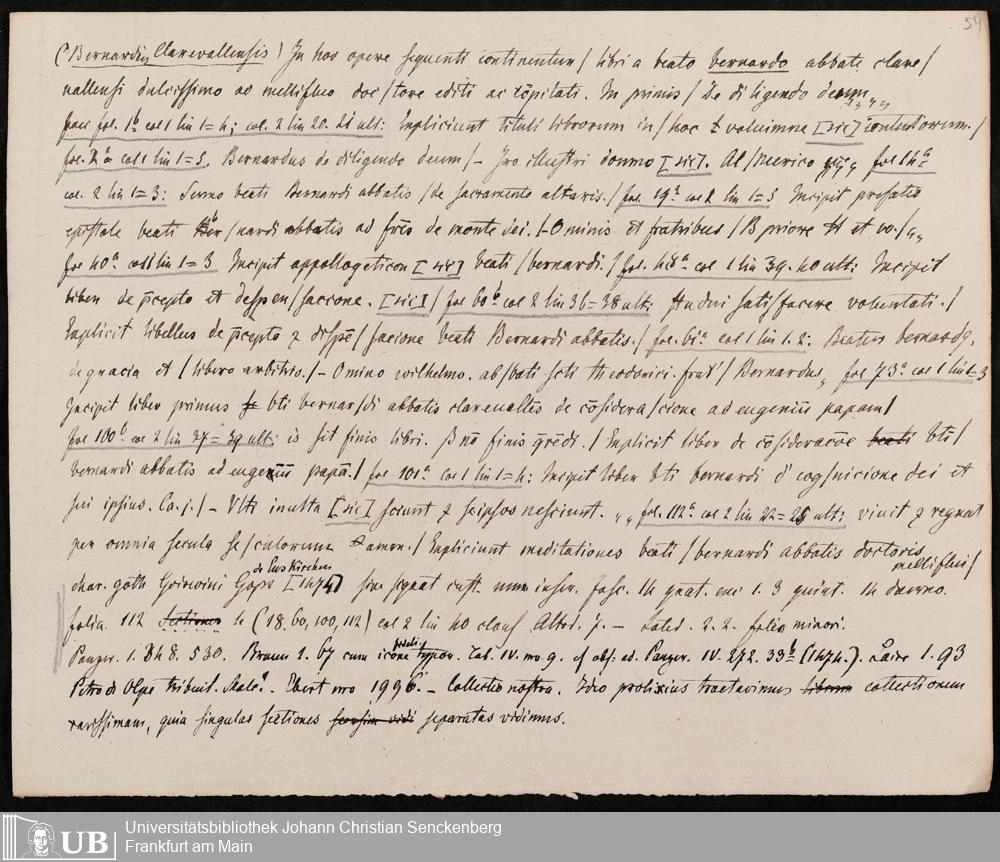 54
(Bernardus Clarevallensis) In hoc opere sequenti continentur / libri a beato bernardo abbate clare /
uallensi dulcissimo ac mellifluo doc / tore editi ac cōpilati. In primis / De diligendo deum
fol. 1b col 1 lin 1=4; col. 2 lin 20. 21 ult: Expliciunt tituli librorum in / hoc volumine [sic] contentorum. /
fol. 2a col 1 lin 1=5. Bernardus de diligendo deum / – Iro illustri domno [sic]. Al / merico fol 14a
col. 2 lin 1=3: Sermo beati Bernardi abbatis / de sacramento altaris. / fol. 19a col 2 lin 1=5 Incipit prefatio
epistole beati Ber / nardi abbatis ad frēs de monte dei. / – Ominis et fratribus / B priore H et vo. /
fol 40a col 1 lin 1=3 Incipit appollogeticon [sic] beati / bernardi. / fol. 48a col 1 lin 39. 40 ult: Incipit
liber de p̄cepto et despen / sacione. [sic] / fol 60b col 2 lin 36=38 ult: studui satisfacere voluntati. /
Explicit libellus de p̄cepto & dispē / sacione beati Bernardi abbatis. / fol. 61a col 1 lin 1. 2: Beatus bernardq.
de gracia et / libero arbitrio. / – Omino wilhelmo. ab / bati scti theodorici. frat' / Bernardus „ fol 73a col 1 lin 1=3
Incipit liber primus bti bernar / di abbatis clareuallēs de cōsidera / cione ad eugeniū papam /
fol 100b col 2 lin 37=39 ult: is sit finis libri. S nō finis q̄rēdi. / Explicit liber de cōsideracōe beati bti /
bernardi abbatis ad eugeniū papā. / fol 101a col 1 lin 1=4: Incipit liber bti bernardi d cog / nicione dei et
sui ipsius. Ca. j. / – Vlti multa [sic] sciunt & seipsos nesciunt. „ „ fol. 112a col 2 lin 22=25 ult: viuit & regnat
per omnia secula se / culorum amen. / Expliciunt meditationes beati / bernardi abbatis doctoris
melliflui /
char. goth Goiswini Gops de Euskirchen [1474] sine signat cust. num inser. fasc. 14 quat. enc 1. 3 quint. 14 duerno.
folia 112 Sectiones 4 (18. 60, 100, 112) col 2 lin 40 clauf Altit. 7. – Latid. 2. 2. folio minori.
Panzer. 1. 348. 530. Braun 1. 67 cum icone fideli typor. Tab. IV. no 9. cf obs. ad. Panzer. IV. 272. 33b (1474.). Laire 1. 93
Petro de Olpe tribuit. Male! Ebert nro 1996. – Collectio nostra. Ideo prolixius tractavimus librum collectionem
rarissimam, quia singulas sectiones seorsim vidi separatas vidimus.
UB
Universitätsbibliothek Johann Christian Senckenberg
Frankfurt am Main